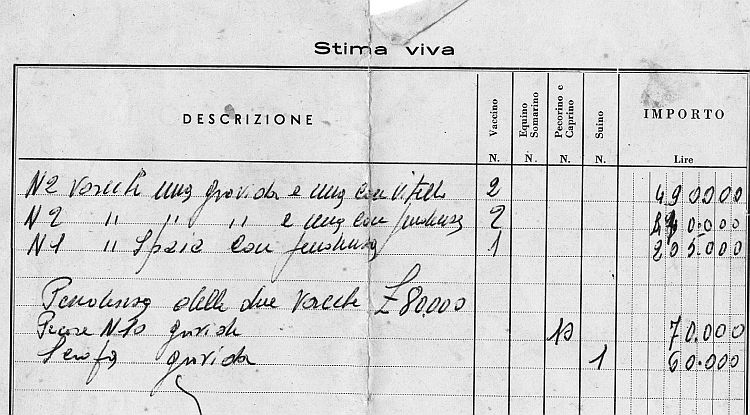 Stima viva
DESCRIZIONE Vaccino N. Equino Somarino N. Pecorino e Caprino N. Suino N. IMPORTO Lire
N2 Vacche una gravida e una con vitello 2 490000
N2 " " " e una con pendenza 2 0.000
N1 " Spaie con pendenza 1 205.000
Pendenza delle due Vacche £80.000
Pecore N10 gravide 10 70.000
Scrofa gravida 1 60.000